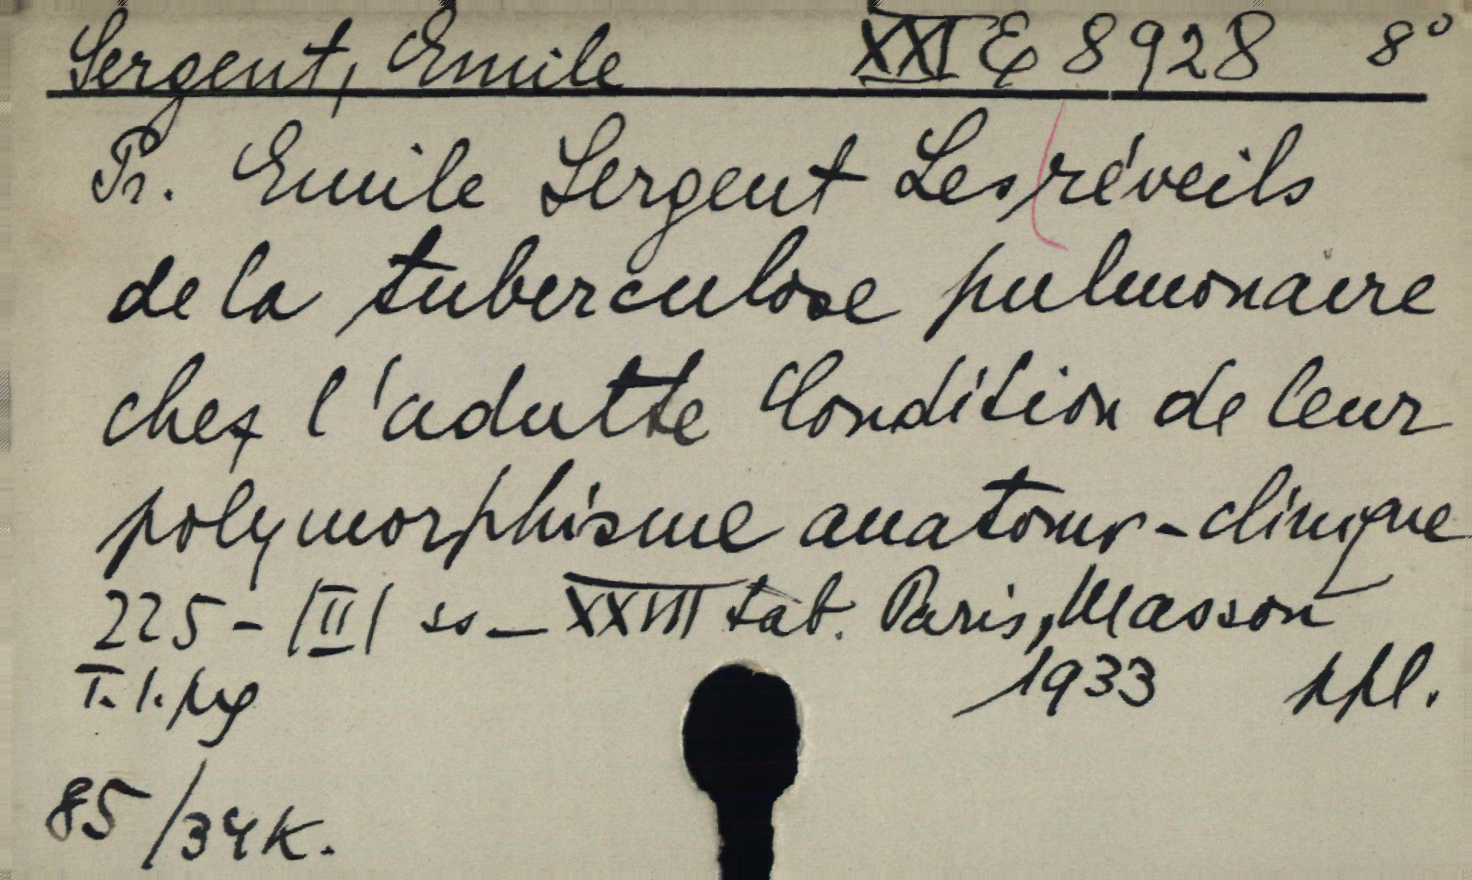 Sergent, Emile XXI E 8928 8°
Pr. Emile Sergent Les réveils
de la tuberculose pulmonaire
chez l'adulte Condition de leur
polymorphisme anatomo-clinique
225 - |II| ss - XXVIII tab. Paris, Masson
1933 ppl.
T. 1.
85/34K.